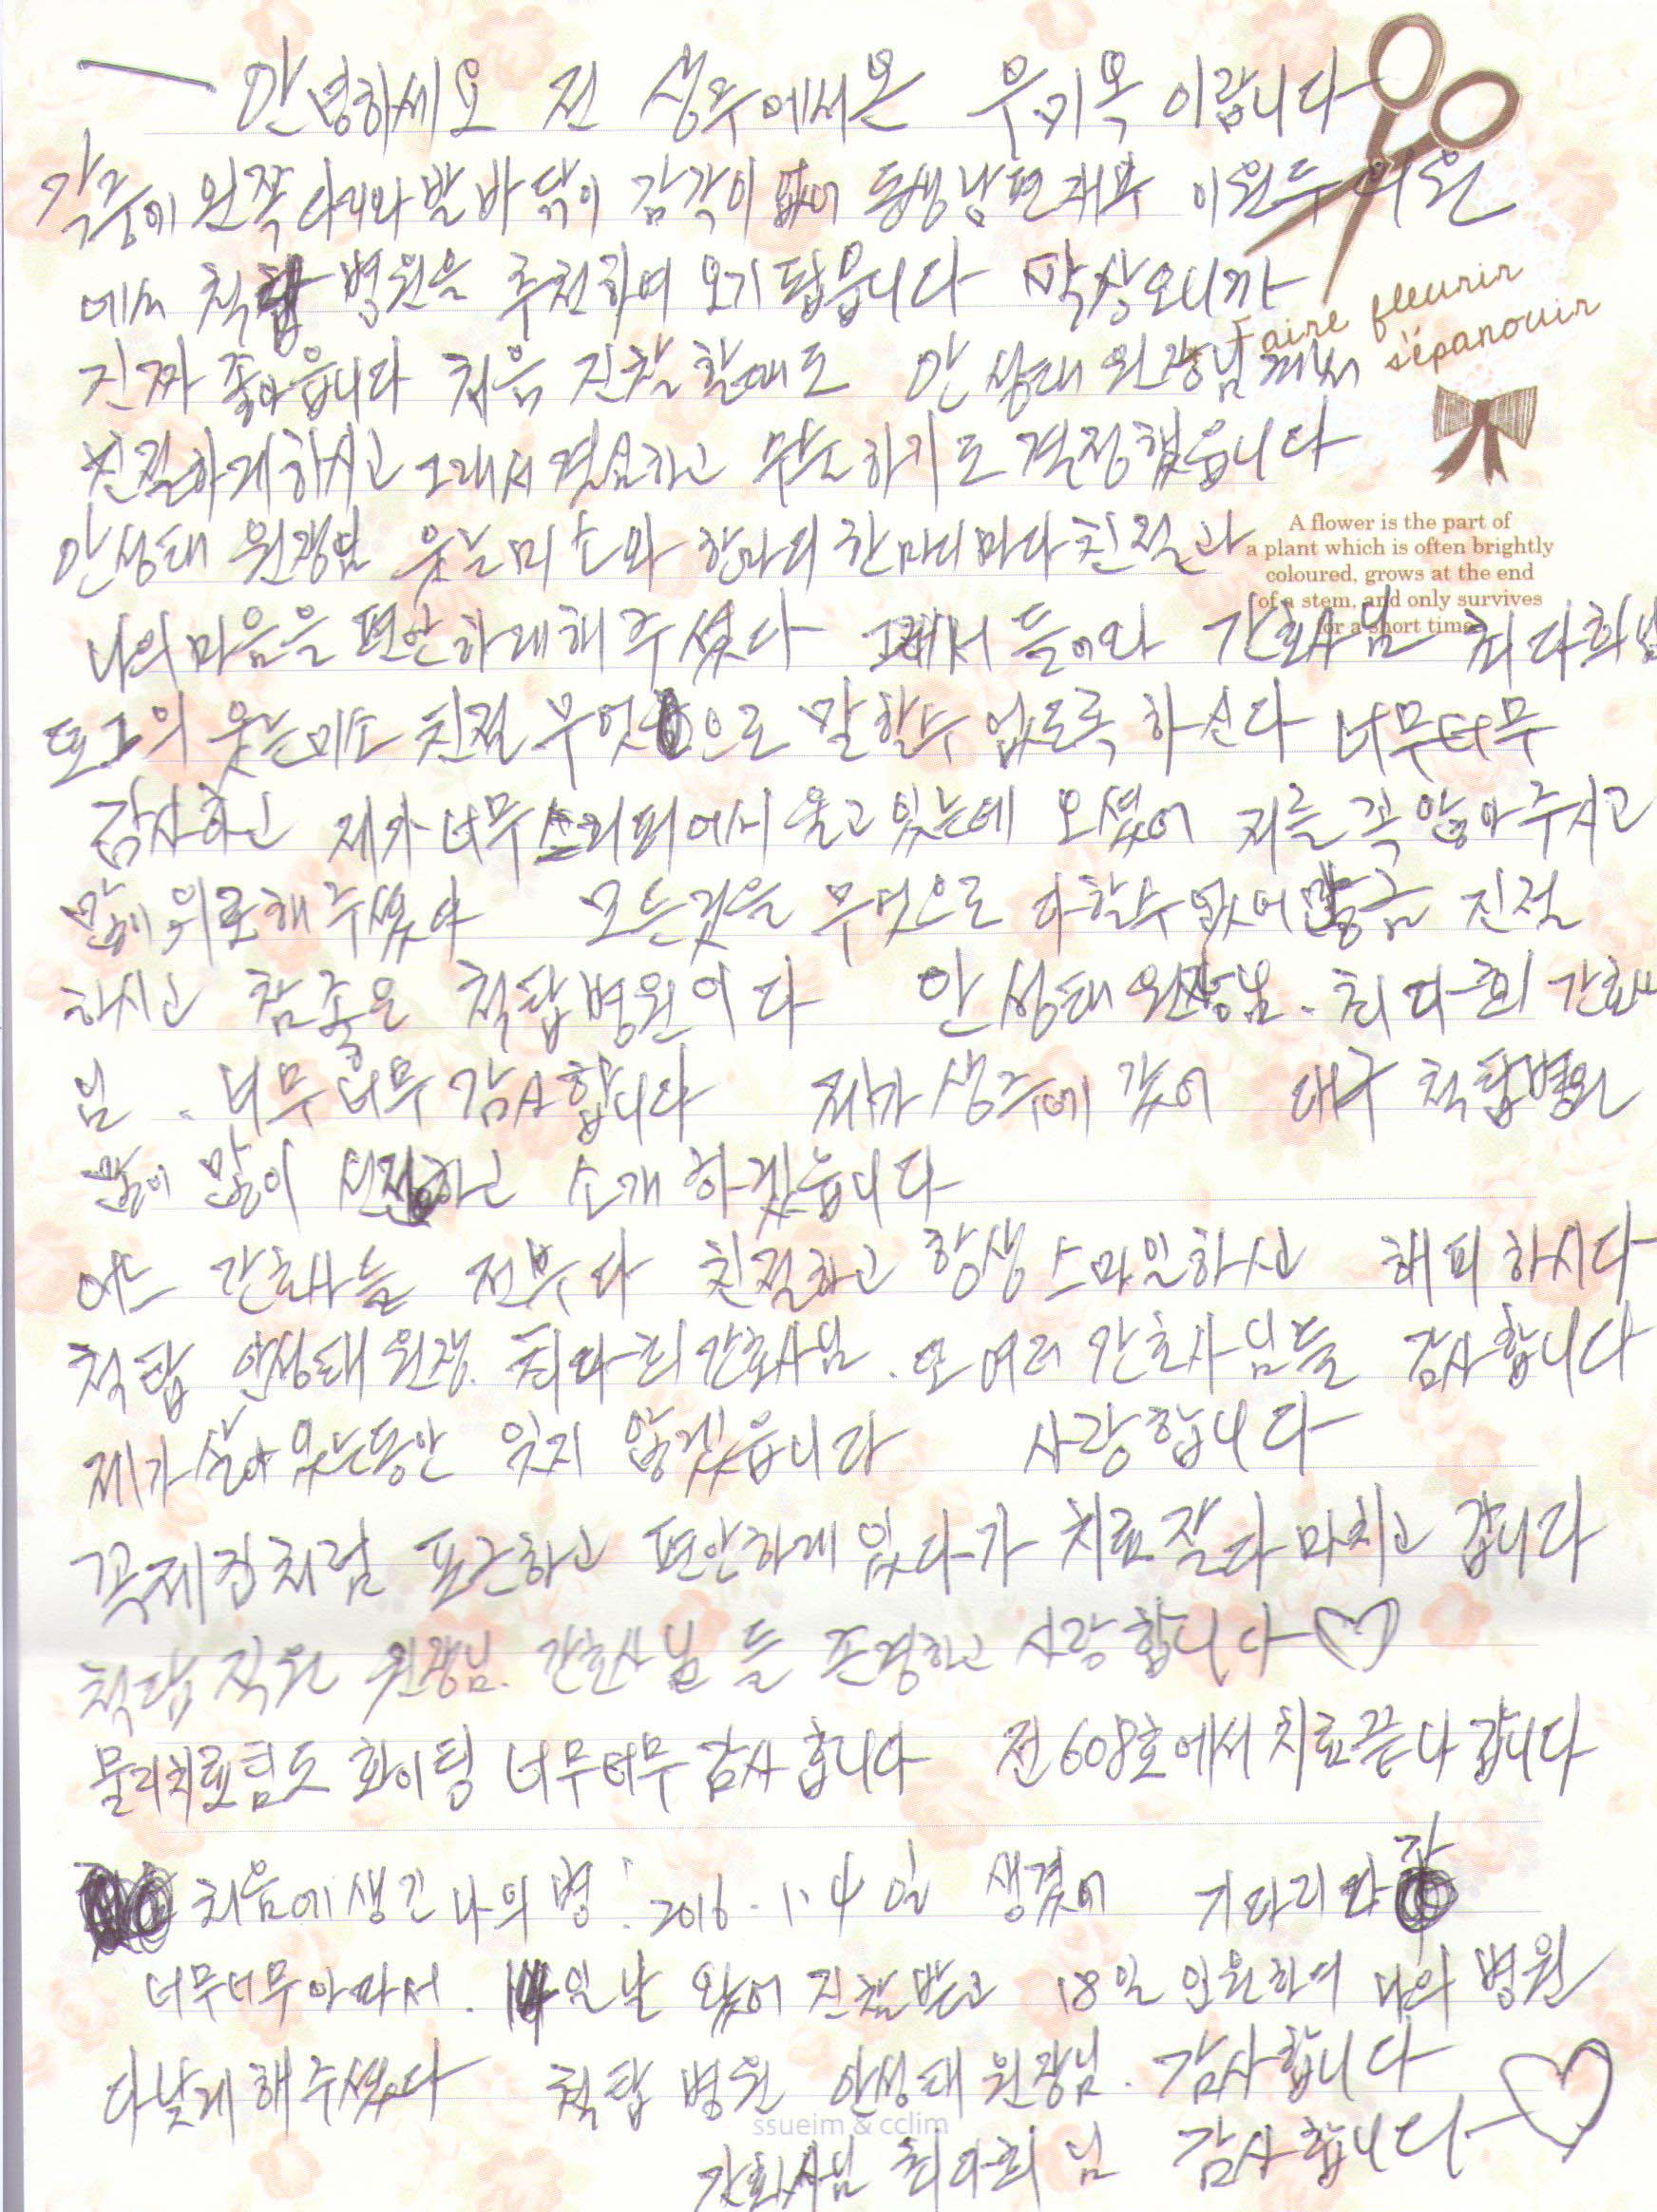 안녕하세요 전 성주에서온 우기옥 이랍니다
각중에 왼쪽다리와 발바닦이 감각이 없어 동생남편재부 이원두의원
에서 척탑 병원을 추천하여 오기 됍읍니다 막상오니까
Faire fleurir
s'épanouir
진짜 좋아읍니다 처음 진찰할때도 안성태원장님께서
친절하게하시고 그래서 결심하고 수술하기로 결정했읍니다
안성태 원장님 웃는미소와 한마디한마디마다 친절과
A flower is the part of
a plant which is often brightly
coloured, grows at the end
of a stem, and only survives
for a short time
나의마음을 편안하게해주셨다 그래서 들어와 간호사님 최다희님
또그의 웃는미소 친절 무엇으로 말할수 없도록 하신다 너무너무
감사하고 제가너무 스러퍼에서 울고있는데 오셨어 저를 꼭 않아주시고
많이 위로해주셨다 모든것을 무엇으로 다할수없어 친절
하시고 참좋은 척탑병원이다 안성태원장님. 최다희 간호사
님. 너무너무감사합니다 제가 성주에 갔어 대구 척탑병원
많이 많이 선전하고 소개 하겠읍니다
어느 간호사들 전부다 친절하고 항상스마일하시고 해피하시다
척탑 안성태원장. 최다희간호사님. 모여러 간호사님들 감사합니다
제가살아있는동안 잊지 않겠읍니다 사랑합니다
꼭제집처럼 포근하고 편안하게있다가 치료잘다마치고 갑니다
척탑직원 원장님. 간호사님 들 존경하고 사랑합니다
물리치료팀도 화이팅 너무너무감사합니다 전608호에서 치료끝나갑니다
처음에생긴나의병. 2016. 1. 4일 생겼어 기다리다가
너무너무아파서. 14일날 왔어 진찰받고 18일 입원하여 나의 병원
다낫게해주셨다 척탑 병원 안성태원장님. 감사합니다
ssueim & cclim
간호사님 최다희님 감사합니다